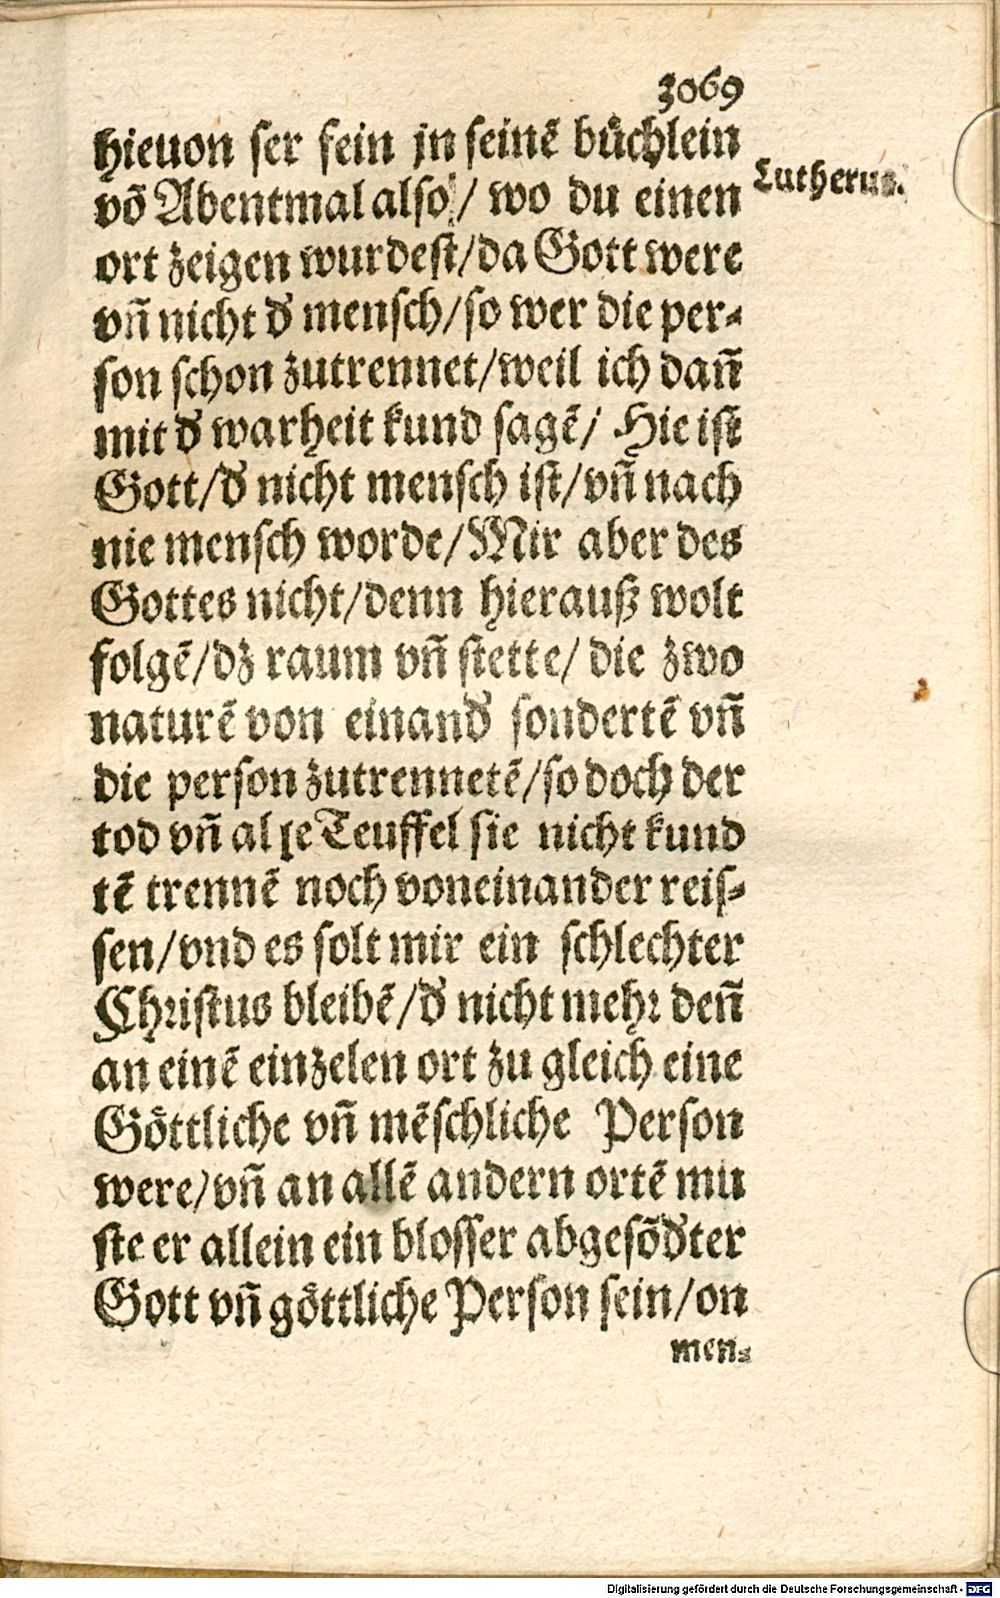 3069
hieuon ser fein jn seinē buͤchlein
Lutherus.
vō Abentmal also / wo du einen
ort zeigen wurdest/da Gott were
vñ nicht d' mensch/so wer die per-
son schon zutrennet/weil ich dañ
mit d' warheit kund sagē/ Hie ist
Gott/d' nicht mensch ist/vñ nach
nie mensch worde/Mir aber des
Gottes nicht/denn hierauß wolt
folgē/dz raum vñ stette/ die zwo
naturē von einand' sondertē vñ
die person zutrennetē/so doch der
tod vñ alle Teuffel sie nicht kund
tē trennē noch voneinander reis-
sen/vnd es solt mir ein schlechter
Christus bleibē/d' nicht mehr deñ
an einē einzelen ort zu gleich eine
Goͤttliche vñ mēschliche Person
were/vñ an allē andern ortē mu
ste er allein ein blosser abgesōd'ter
Gott vñ goͤttliche Person sein/on
men-
Digitalisierung gefördert durch die Deutsche Forschungsgemeinschaft - DFG